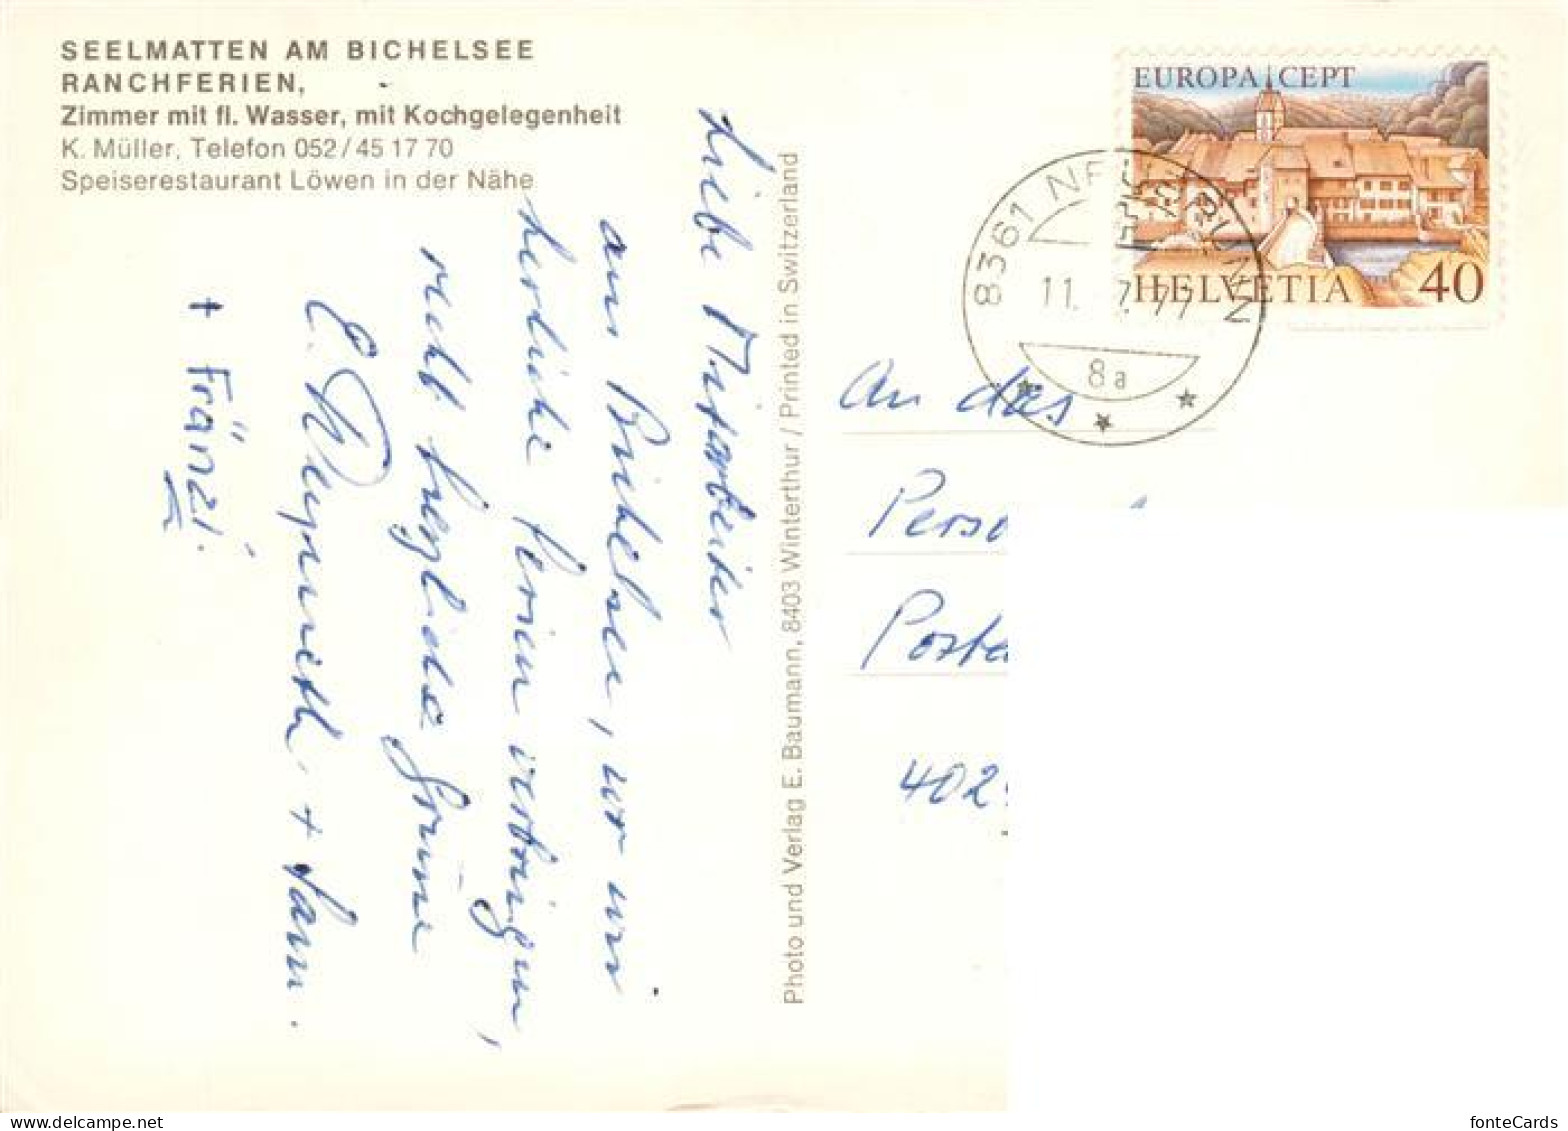 SEELMATTEN AM BICHELSEE
RANCHFERIEN,
Zimmer mit fl. Wasser, mit Kochgelegenheit
K. Müller, Telefon 052/45 17 70
Speiserestaurant Löwen in der Nähe
Liebe Mitarbeiter
am Bichelsee, wo wir
herrliche Ferien verbringen,
recht herzliche Grüsse
E. + Fam.
+ Fränzi.
Photo und Verlag E. Baumann, 8403 Winterthur / Printed in Switzerland
EUROPA CEPT
HELVETIA 40
8361
11. 7. 77
8a
An das
fonteCards